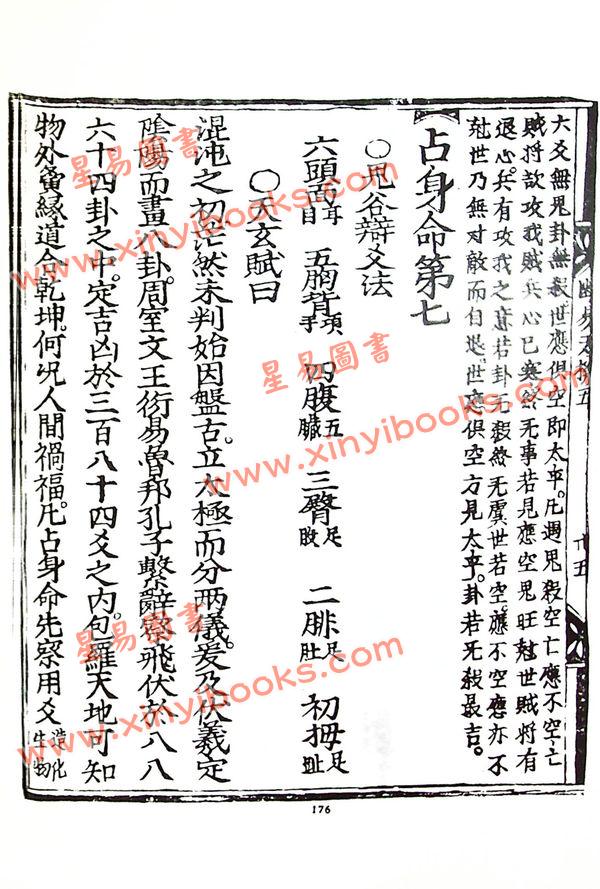 廿五
六爻無鬼卦無殺世應俱空即太平。凡遇鬼殺空亡應不空亡
賊将欲攻我賊兵心已寒終无事若見應空鬼旺尅世賊将有
退心。兵有攻我之意若卦无殺終无虞世若空。應不空應亦不
尅世乃無对敵而自退。世應俱空方見太平。卦若无殺最吉。
占身命第七
○鬼谷辯爻法
六頭面耳目 五胸背項手 四腹五臟 三臀足股 二腓足肚 初拇足趾
○天玄賦曰
混沌之初茫然未判始因盤古。立太極而分兩儀。爰及伏羲定
陰陽而畫八卦。周室文王衍易魯邦孔子繫辭飛伏於八八
六十四卦之中。定吉凶於三百八十四爻之内。包羅天地可知
物外夤縁道合乾坤。何况人間禍福。凡占身命先察用爻造化生物
176
星易圖書
www.xinyibooks.com
星易圖書
www.xinyibooks.com
星易圖書
www.xinyibooks.com